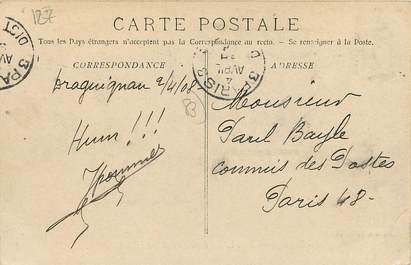 127
CARTE POSTALE
Tous les Pays étrangers n'acceptent pas la Correspondance au recto. — Se renseigner à la Poste.
CORRESPONDANCE
Draguignan 2/4/08
Hum!!!
ADRESSE
Monsieur
Paul Bayle
commis des Postes
Paris 48-
PARIS
AVRIL
DIST
83